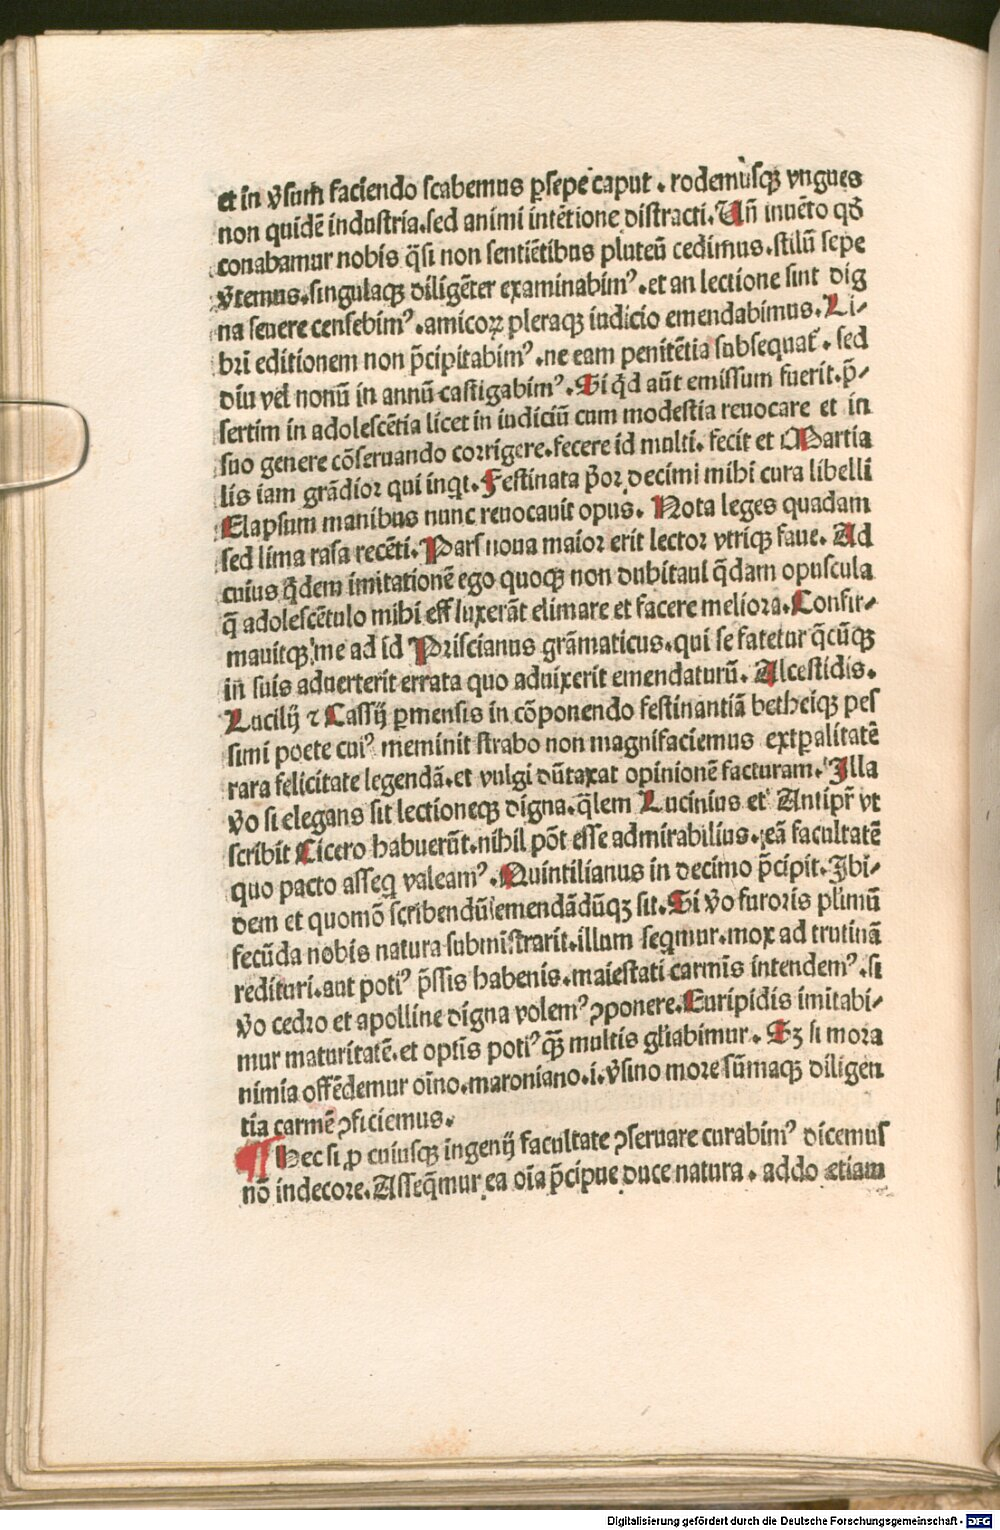 et in v̄sum faciendo scabemus ꝑsepe caput . rodemusqꝫ vngues
non quidē industria.sed animi intētione distracti.Un̄ inuēto qđ
conabamur nobis q̄si non sentiētibus pluteū cedimus.stilū sepe
v̄temus.singulaqꝫ diligēter examinabimꝰ.et an lectione sint dig
na seuere censebimꝰ.amicoꝝ pleraqꝫ iudicio emendabimus.Li-
bri editionem non p̄cipitabimꝰ.ne eam penitētia subsequat᷑. sed
diu vel nonū in annū castigabimꝰ.Si qd aūt emissum fuerit.p̄-
sertim in adolescētia licet in iudiciū cum modestia reuocare et in
suo genere cōseruando corrigere.fecere id multi. fecit et Martia
lis iam grādior qui inqt.Festinata p̄or decimi mihi cura libelli
Elapsum manibus nunc reuocauit opus. Nota leges quadam
sed lima rasa recēti.Pars noua maior erit lector vtriqꝫ faue. Ad
cuius q̄dem imitationē ego quoqꝫ non dubitaui q̄dam opuscula
q̄ adolescētulo mihi effluxerāt elimare et facere meliora.Confir-
mauitqꝫ me ad id Priscianus grāmaticus.qui se fatetur q̄cūqꝫ
in suis aduerterit errata quo aduixerit emendaturū. Alcestidis.
Lucilij ⁊ Cassij ꝑmensis in cōponendo festinantiā betheiqꝫ pes
simi poete cuiꝰ meminit strabo non magnifaciemus extꝑalitatē
rara felicitate legendā.et vulgi dūtaxat opinionē facturam. Illa
v̄o si elegans sit lectioneqꝫ digna.q̄lem Lucinius et Antipr̄ vt
scribit Cicero habuerūt.nihil pōt esse admirabilius. eā facultatē
quo pacto asseq valeamꝰ.Quintilianus in decimo p̄cipit.Ibi-
dem et quomō scribendū emendādūqꝫ sit.Si v̄o furoris plimū
fecūda nobis natura subministrarit.illum seqmur.mox ad trutinā
redituri.aut potiꝰ p̄ssis habenis.maiestati carmīs intendemꝰ.si
v̄o cedro et apolline digna volemꝰ ꝯponere.Euripidis imitabi-
mur maturitatē.et optīs potiꝰ qꝫ̄ multis gl̄iabimur. Sꝫ si mora
nimia offēdemur oīno.maroniano.i.v̄sino more sūmaqꝫ diligen
tia carmē ꝯficiemus.
¶ Hec si ꝓ cuiusqꝫ ingenij facultate ꝯseruare curabimꝰ dicemus
nō indecore.Asseq̄mur ea oīa p̄cipue duce natura. addo etiam
Digitalisierung gefördert durch die Deutsche Forschungsgemeinschaft - DFG